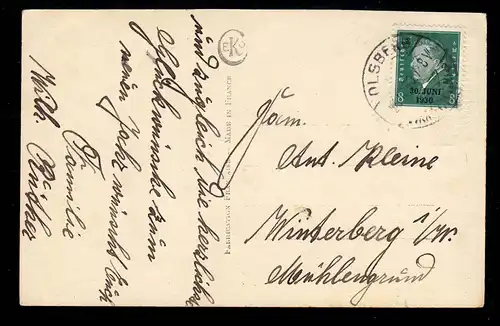 und zugleich die herzlichsten
Glückwünsche zum
neuen Jahr wünscht Euch
Familie
Wilh.
EKC
FABRICATION FRANÇAISE - MADE IN FRANCE
OLSBERG
30. JUNI
1930
8 8
Fam.
Ant. Kleine
Winterberg i/W.
Mühlengrund